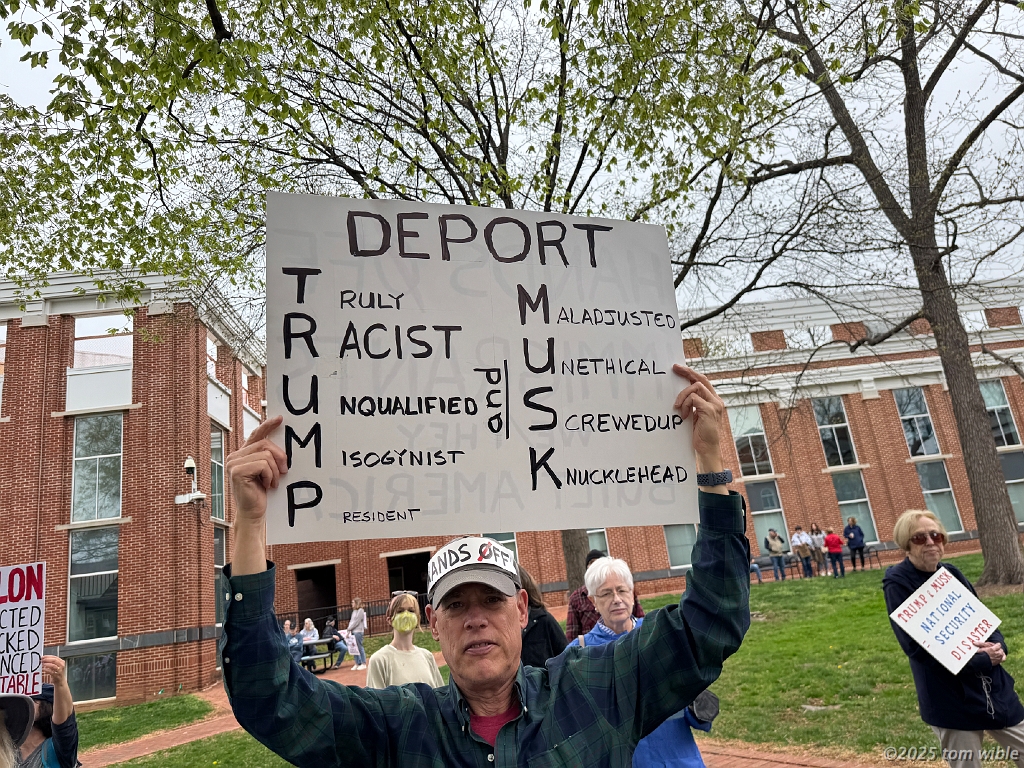 DEPORT
TRULY
RACIST
UNQUALIFIED
MISOGYNIST
PRESIDENT
and
MALADJUSTED
UNETHICAL
SCREWEDUP
KNUCKLEHEAD
HANDS OFF!
LON
CTED
CKED
NCED
TABLE
TRUMP & MUSK
=
NATIONAL
SECURITY
DISASTER
HANDS OFF
IMMIGRANTS
THEY
BUILT AMERICA
©2025 tom wible